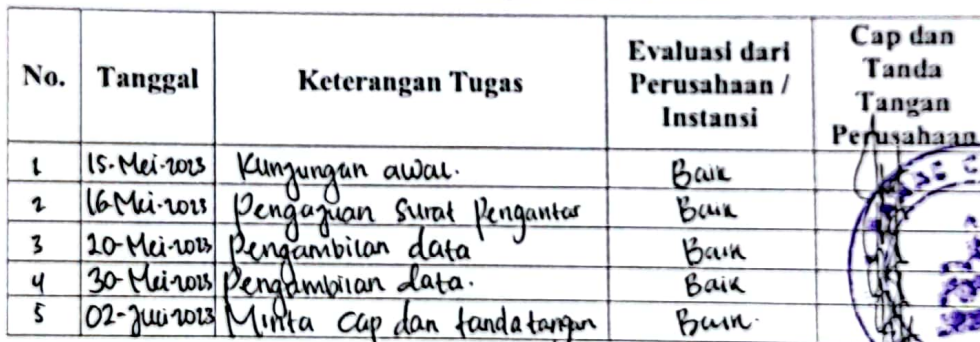 No. Tanggal Keterangan Tugas Evaluasi dari Perusahaan / Instansi Cap dan Tanda Tangan Perusahaan
1 15-Mei-2023 Kunjungan awal. Baik
2 16-Mei-2023 Pengajuan Surat Pengantar Baik
3 20-Mei-2023 Pengambilan data Baik
4 30-Mei-2023 Pengambilan data. Baik
5 02-Juli-2023 Minta cap dan tandatangan Baik.